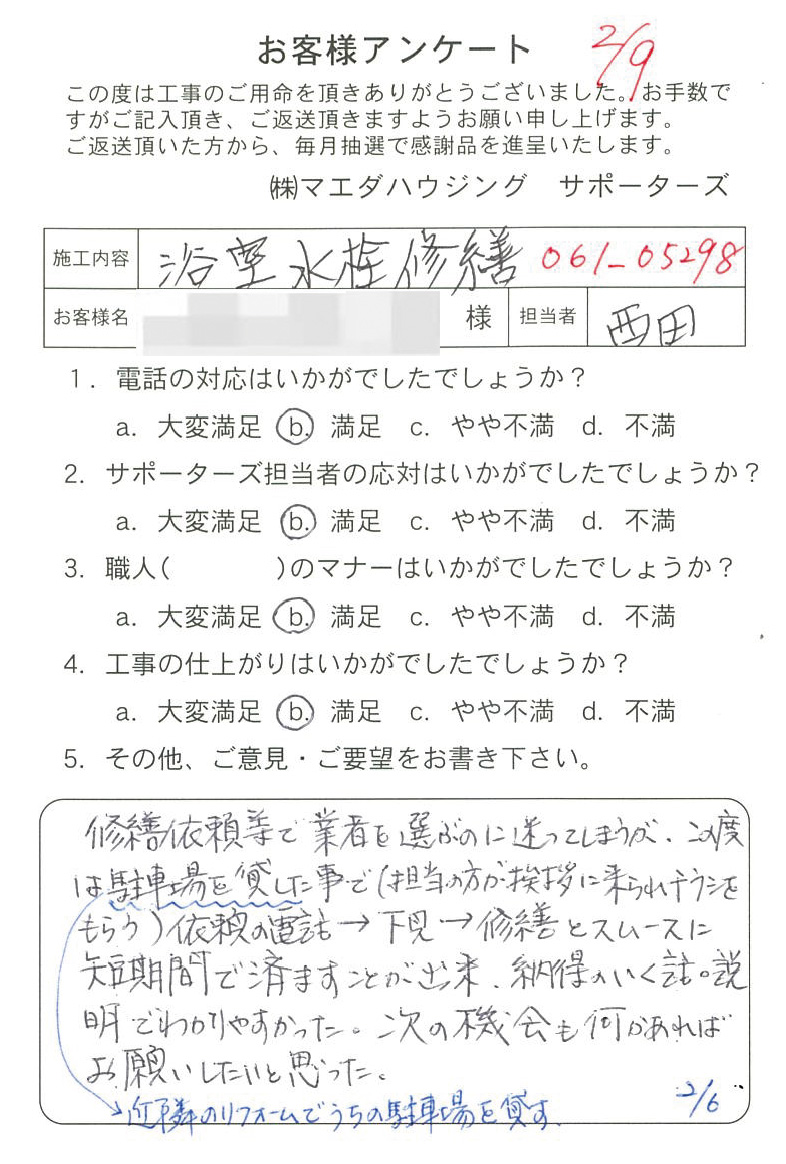 お客様アンケート
2/9
この度は工事のご用命を頂きありがとうございました。お手数で
すがご記入頂き、ご返送頂きますようお願い申し上げます。
ご返送頂いた方から、毎月抽選で感謝品を進呈いたします。
㈱マエダハウジング　サポーターズ
施工内容 浴室水栓修繕 061-05298
お客様名 様 担当者 西田
1. 電話の対応はいかがでしたでしょうか？
a. 大変満足 b. 満足 c. やや不満 d. 不満
2. サポーターズ担当者の応対はいかがでしたでしょうか？
a. 大変満足 b. 満足 c. やや不満 d. 不満
3. 職人(　　　　)のマナーはいかがでしたでしょうか？
a. 大変満足 b. 満足 c. やや不満 d. 不満
4. 工事の仕上がりはいかがでしたでしょうか？
a. 大変満足 b. 満足 c. やや不満 d. 不満
5. その他、ご意見・ご要望をお書き下さい。
修繕依頼等で業者を選ぶのに迷ってしまうが、この度
は駐車場を貸した事で(担当の方が挨拶に来られチラシを
もらう)依頼の電話→下見→修繕とスムースに
短期間で済ますことが出来、納得のいく話。説
明でわかりやすかった。次の機会も何かあれば
お願いしたいと思った。
2/6
近隣のリフォームでうちの駐車場を貸す.